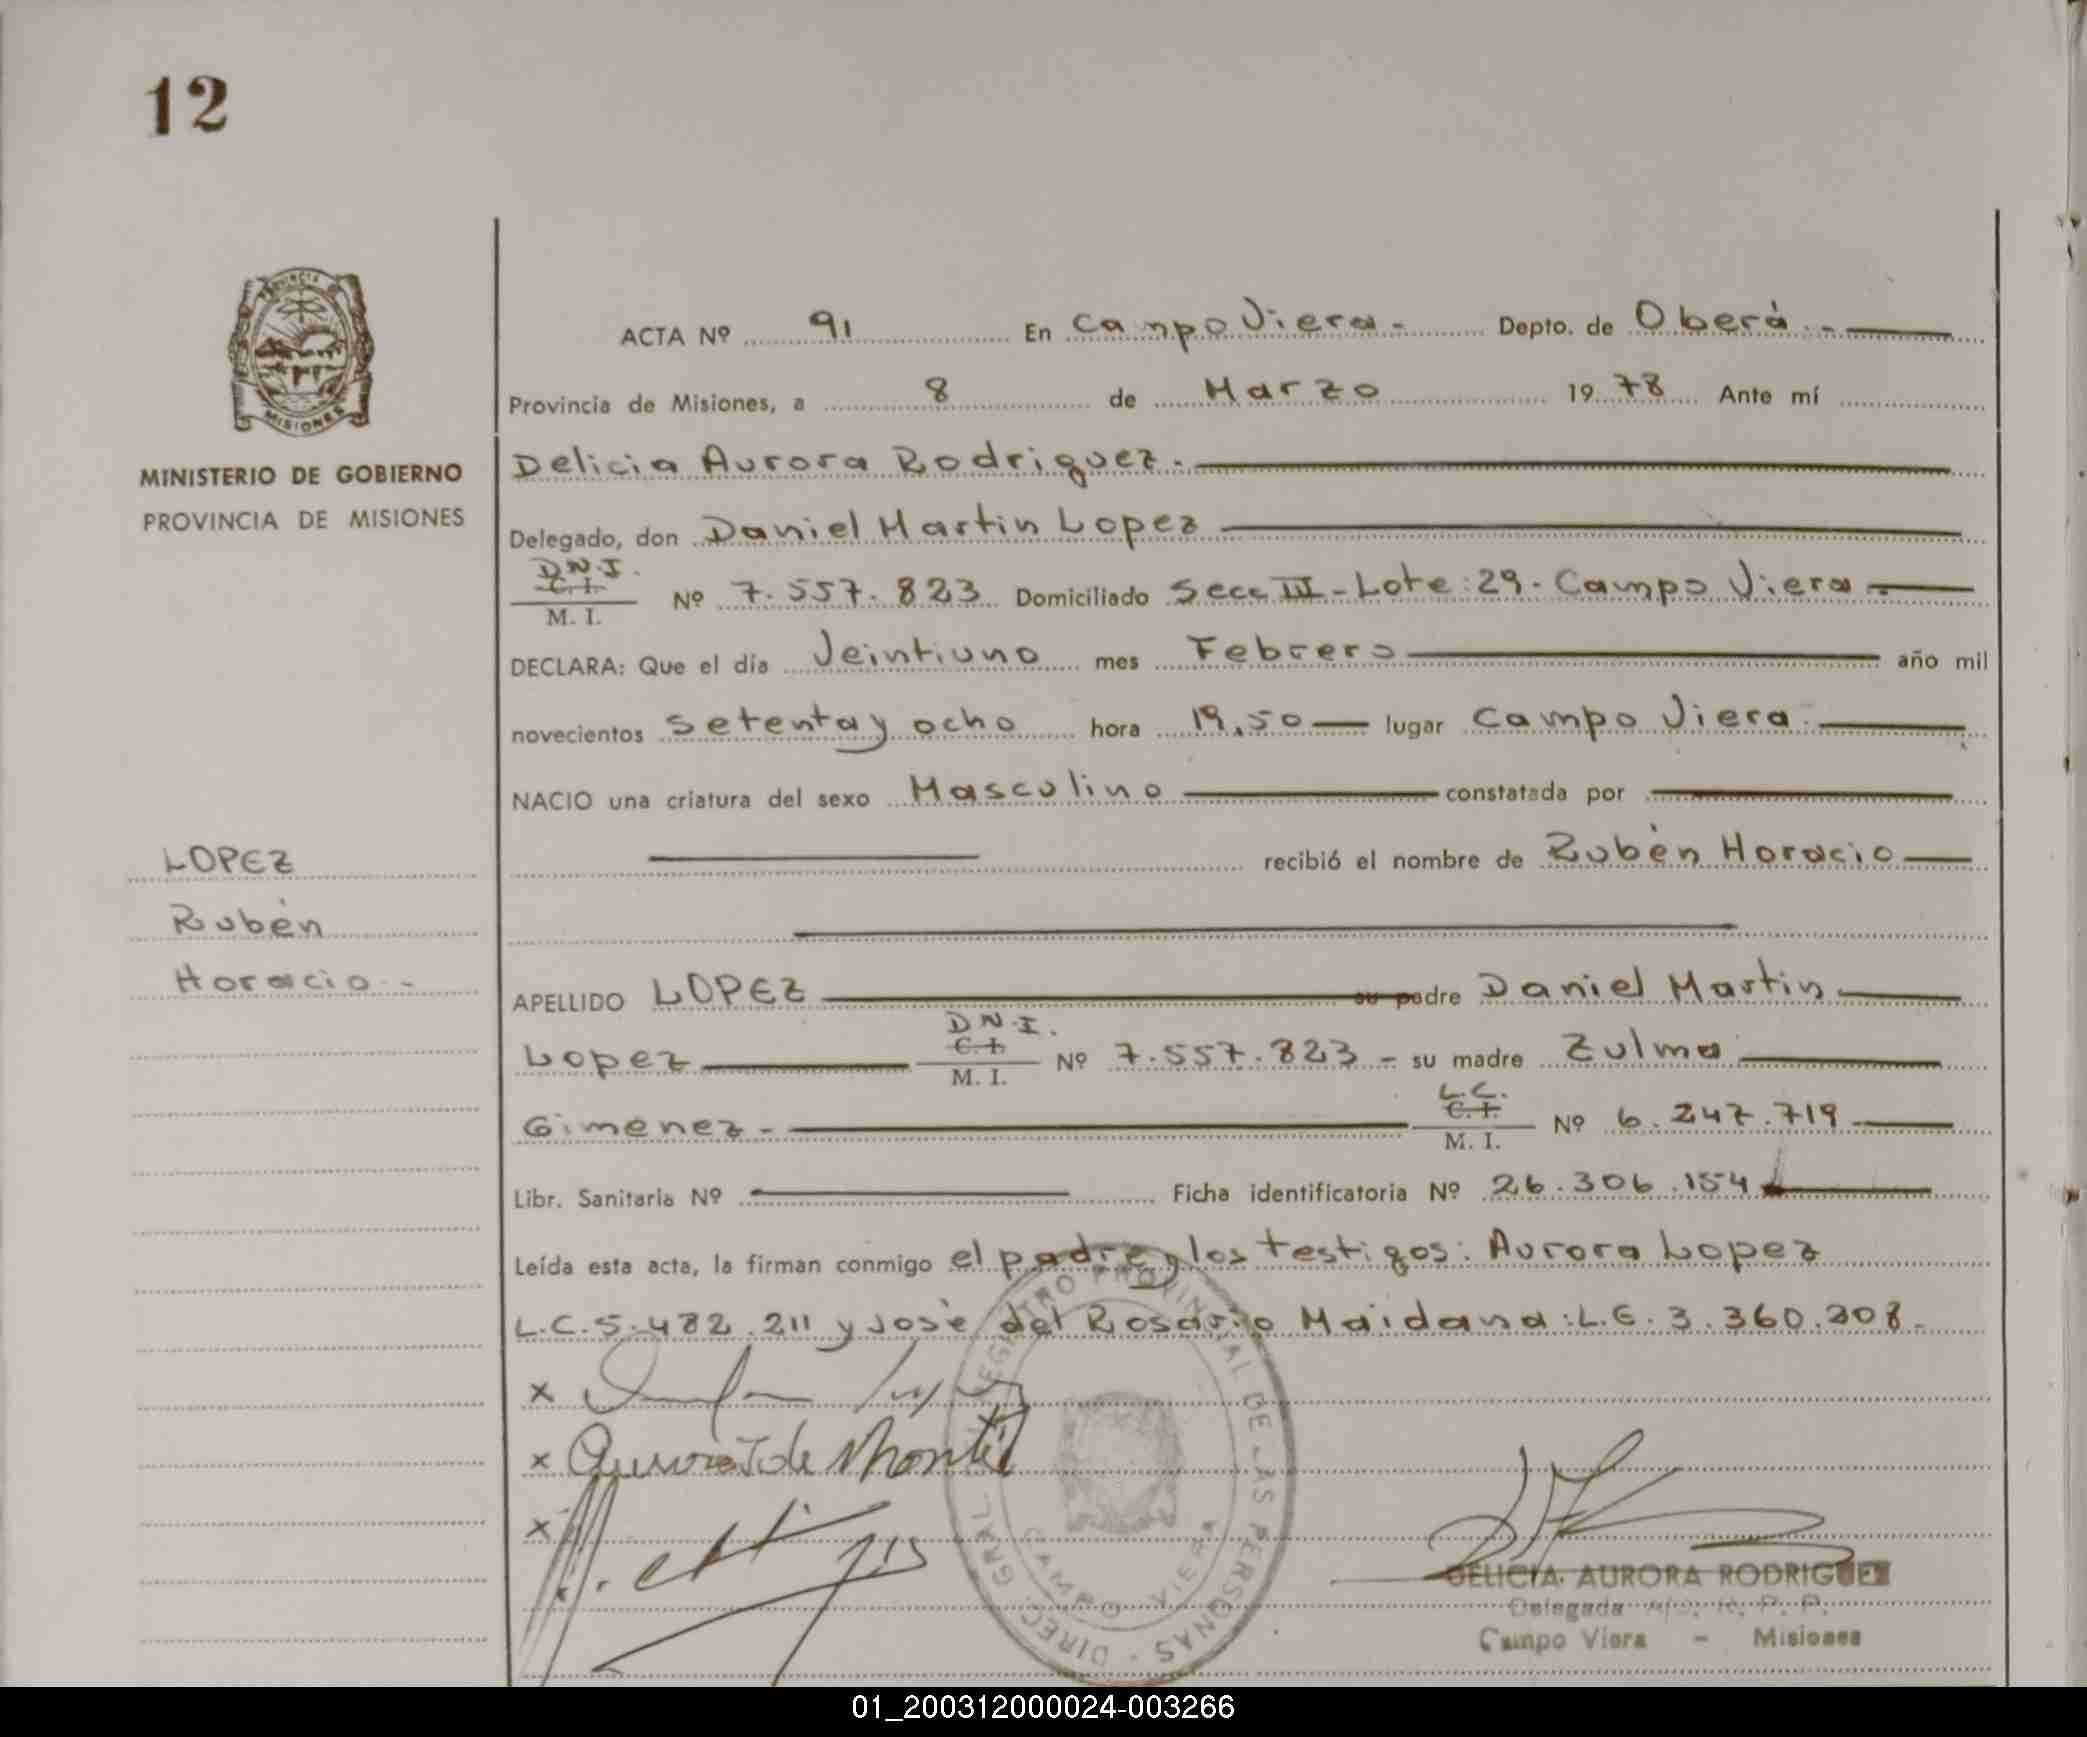 12
PROVINCIA DE
MISIONES
MINISTERIO DE GOBIERNO
PROVINCIA DE MISIONES
LOPEZ
Rubén
Horacio -
ACTA Nº 91 En Campo Viera - Depto. de Oberá. -
Provincia de Misiones, a 8 de Marzo 1978 Ante mí
Delicia Aurora Rodriguez.
Delegado, don Daniel Martin Lopez
D.N.I.
C. I.
M. I. Nº 7.557.823 Domiciliado Secc III - Lote: 29 - Campo Viera -
DECLARA: Que el día Veintiuno mes Febrero año mil
novecientos setenta y ocho hora 19,50 lugar Campo Viera.
NACIO una criatura del sexo Masculino constatada por
recibió el nombre de Rubén Horacio
APELLIDO LOPEZ su padre Daniel Martin
D.N.I.
Lopez C. I. M. I. Nº 7.557.823 - su madre Zulma
L.C.
Gimenez - C. I. M. I. Nº 6.247.719
Libr. Sanitaria Nº Ficha identificatoria Nº 26.306.154
Leída esta acta, la firman conmigo el padre y los testigos: Aurora Lopez
L.C. 5.482.211 y José del Rosario Maidana: L.E. 3.360.308 -
x
x Aurora de Montiel
x
DIREC. GRAL. DEL REGISTRO PROVINCIAL DE LAS PERSONAS -
CAMPO VIERA
DELICIA AURORA RODRIGUEZ
Delegada R. P. P.
Campo Viera - Misiones
01_200312000024-003266